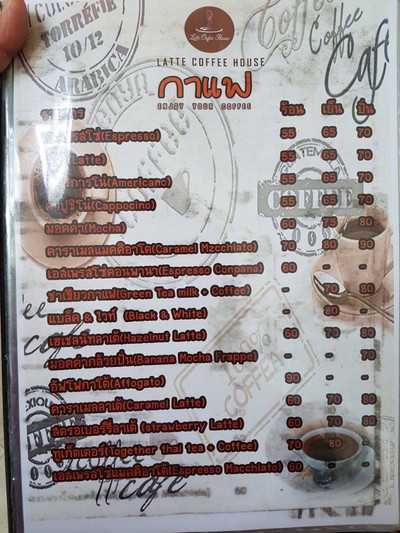 TORRÉFIÉ
10/12
ARABICA
Coffee
Coffee
Café
Latte Coffee House
LATTE COFFEE HOUSE
กาแฟ
ENJOY YOUR COFFEE
ร้อน เย็น ปั่น
(Espresso) 55 65 70
Latte) 55 65 70
(Americano) 55 65 70
(Cappocino) 55 65 70
มอคค่า(Mocha) 60 75 80
คาราเมลแมคคิอาโต้(Caramel Mzcchiato) 70 80 90
เอสเพรสโซ่คอนพานา(Espresso Conpana) 60 - -
ชาเขียวกาแฟ(Green Tea milk + Coffee) - 70 80
แบล็ค & ไวท์ (Black & White) - 80 -
เฮเซลนัทลาเต้(Hazelnut Latte) 60 70 80
มอคค่ากล้วยปั่น(Banana Mocha Frappe) - - 70
อัฟโฟกาโต้(Affogato) 90 - -
คาราเมลลาเต้(Caramel Latte) 60 70 80
สตรอเบอร์รี่ลาเต้ (strawberry Latte) 60 70 80
ทูเก็ตเตอร์(Together thai tea + Coffee) 70 80 -
เอสเพรสโซ่แมคคิอาโต้(Espresso Macchiato) 60 - -
COFFEE
100%
COFFEA
café
coffee
café